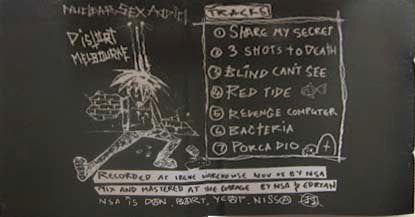 NUCLEAR SEX ADDICT
DISTORT
MELBOURNE
TRACKS
① SHARE MY SECRET
② 3 SHOTS to DEATH
③ BLIND CAN'T SEE
④ RED TIDE
⑤ REVENGE COMPUTER
⑥ BACTERIA
⑦ PORCA DIO
RECORDED AT IRENE WAREHOUSE NOV 05 BY NSA
MIX AND MASTERED AT THE GARAGE BY NSA & EDRYAN
NSA IS DAN, BART, YEAP, NISSA